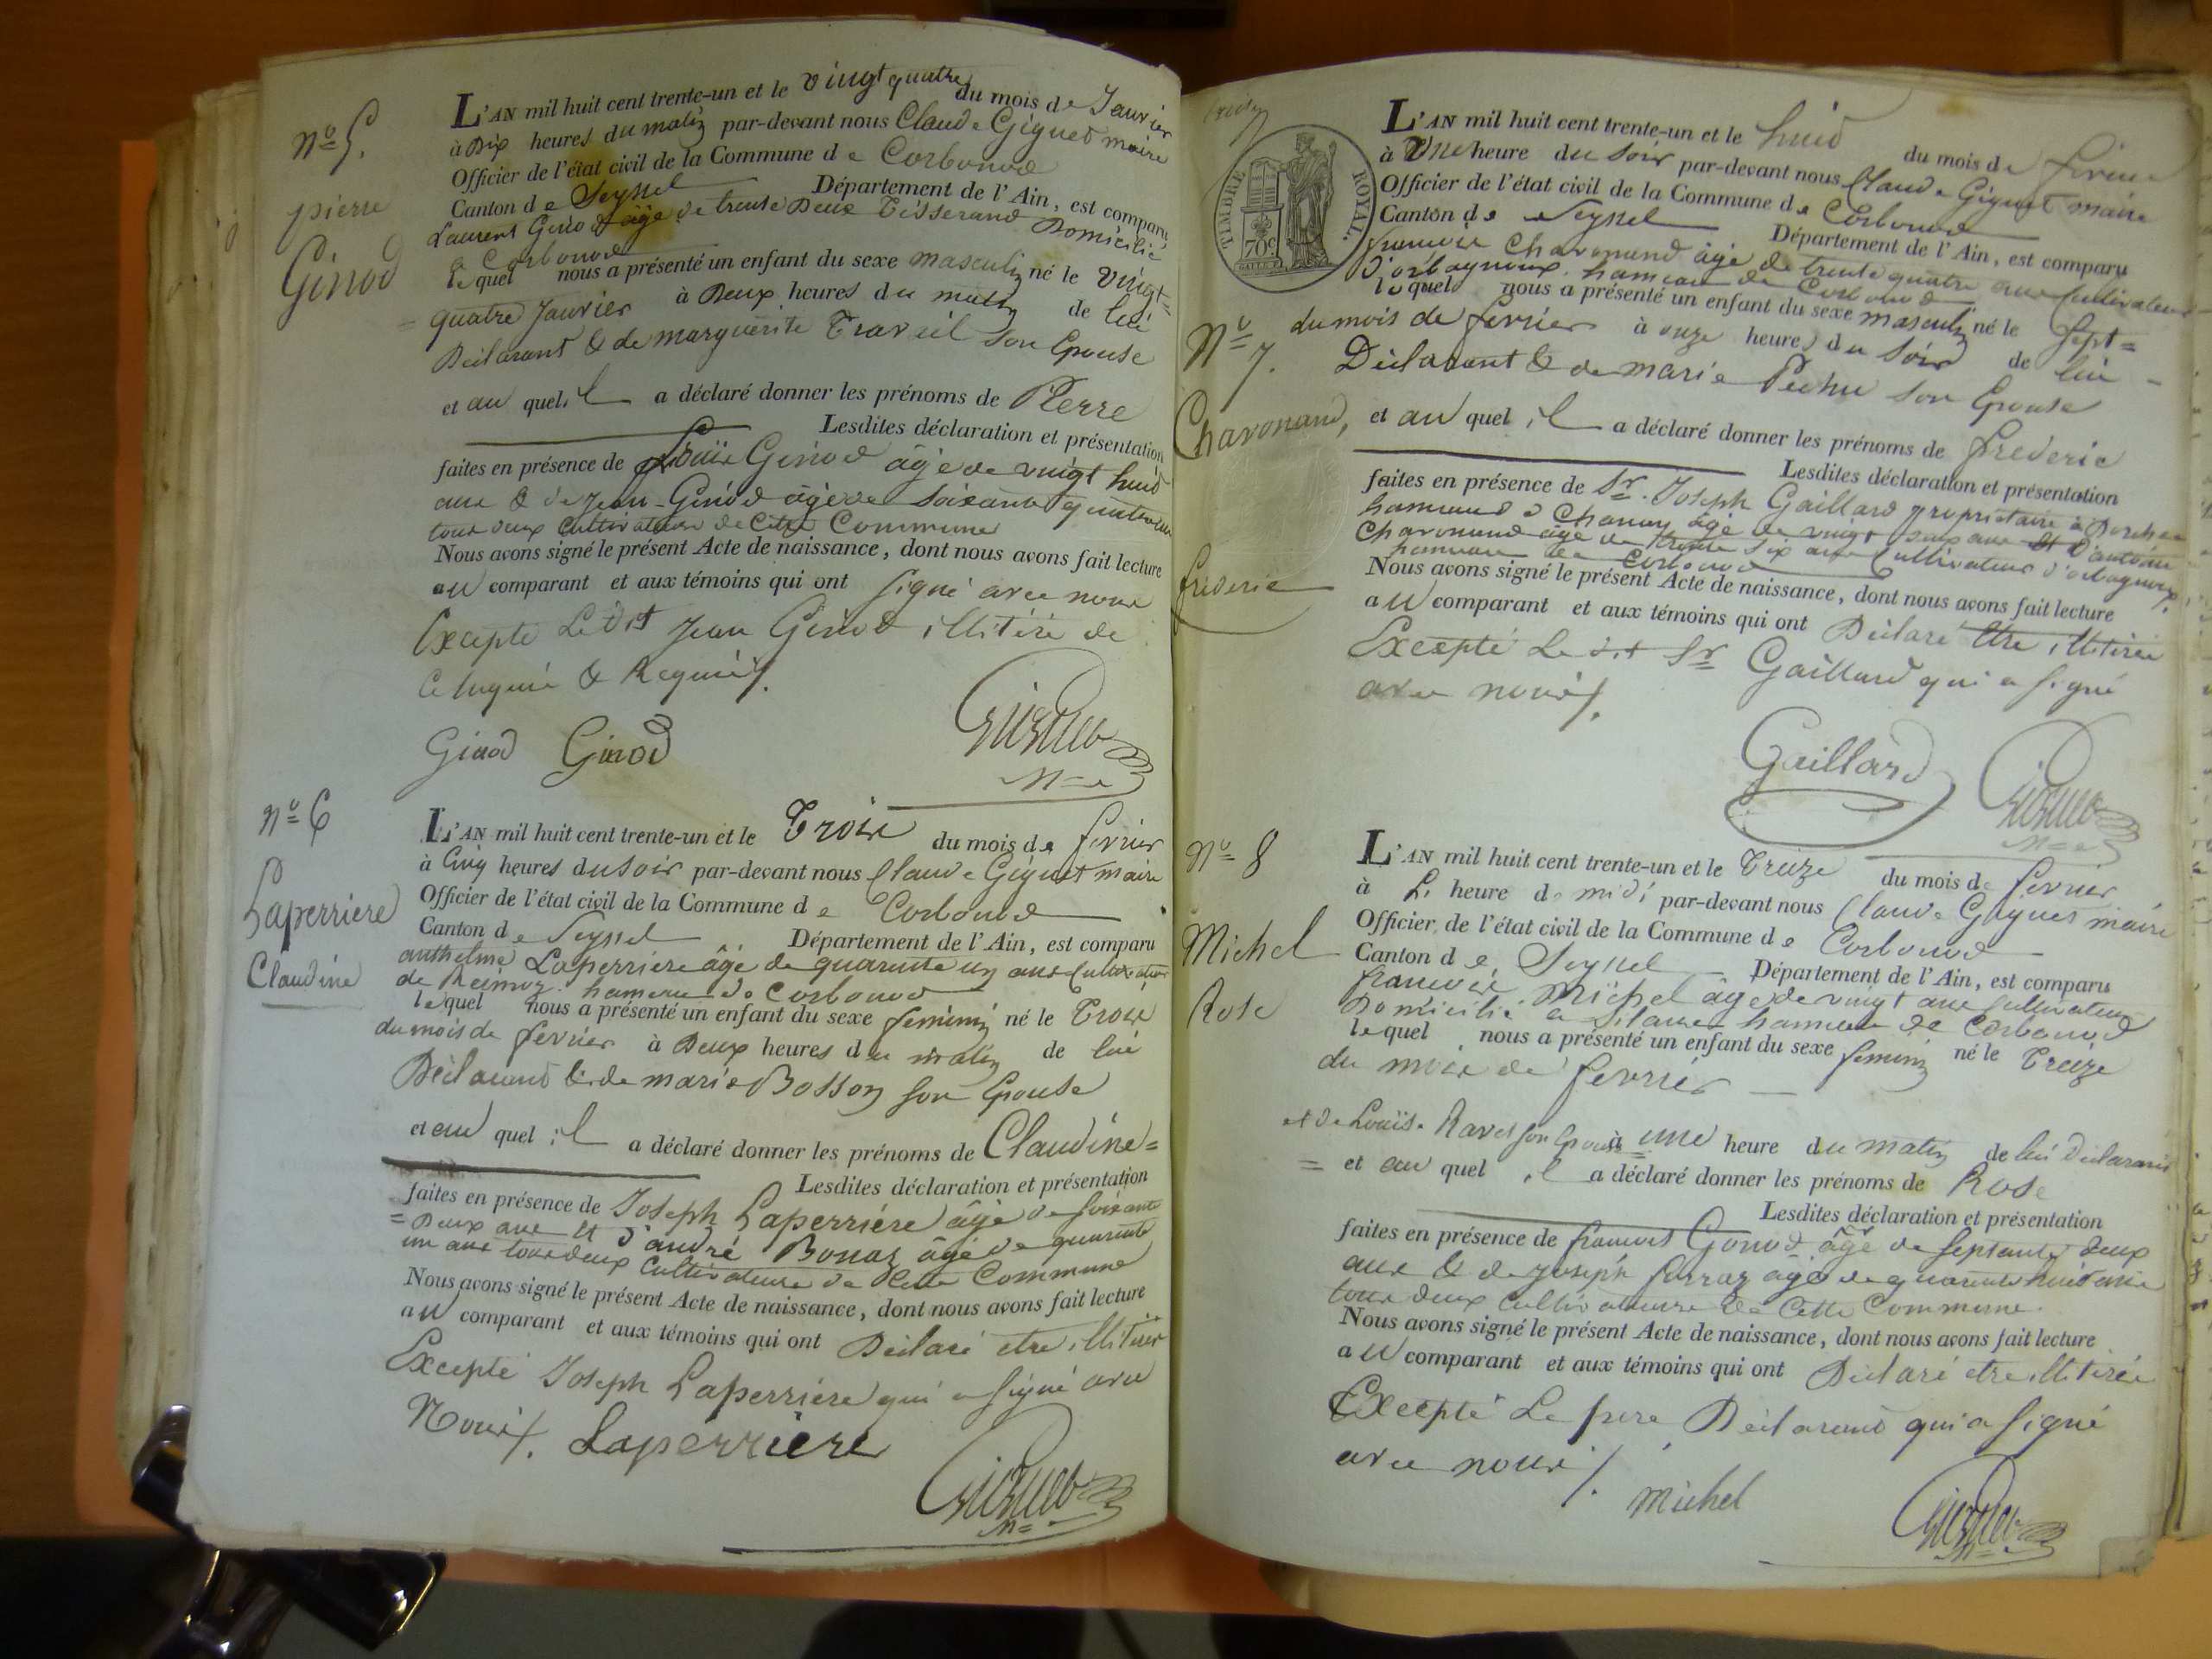 nº 5.
pierre
Ginod
L'AN mil huit cent trente-un et le vingt quatre du mois de Janvier
à Dix heures du matin par-devant nous Claude Giguet maire
Officier de l'état civil de la Commune de Corbonod
Canton de Seyssel Département de l'Ain, est comparu
Laurent Ginod âgé de trente Deux Tisserand Domicilié
à Corbonod
lequel nous a présenté un enfant du sexe masculin né le vingt=
= quatre Janvier à Deux heures du matin de lui
Déclarant & de marguerite Travail son Epouse
et au quel il a déclaré donner les prénoms de Pierre
Lesdites déclaration et présentation
faites en présence de Louis Ginod âgé de vingt huid
ans & de Jean Ginod âgé de soixante quatre ans
tous deux Cultivateurs de Cette Commune
Nous avons signé le présent Acte de naissance, dont nous avons fait lecture
au comparant et aux témoins qui ont signé avec nous
Excepté Le dit Jean Ginod illitéré de
ce Enquis & Requis/.
Ginod Ginod
Giguet
M=e
nº 6
Laperriere
Claudine
L'AN mil huit cent trente-un et le Trois du mois de fevrier
à Cinq heures du soir par-devant nous Claude Giguet maire
Officier de l'état civil de la Commune de Corbonod
Canton de Seyssel Département de l'Ain, est comparu
anthelme Laperriere âgé de quarante un ans Cultivateur
de hameau de Corbonod
lequel nous a présenté un enfant du sexe feminin né le Trois
du mois de fevrier à Deux heures du matin de lui
Déclarant & de marie Bosson son Epouse
et au quel il a déclaré donner les prénoms de Claudine=
Lesdites déclaration et présentation
faites en présence de Joseph Laperriére âgé de soixante
= Deux ans et d'andré Bonaz âgé de quarante
un ans tous deux Cultivateurs de Cette Commune
Nous avons signé le présent Acte de naissance, dont nous avons fait lecture
au comparant et aux témoins qui ont Déclaré etre illitéré
Excepté Joseph Laperriere qui a signé avec
Nous/. Laperriere
Giguet
M=
TIMBRE ROYAL.
70c.
Nº 7.
Charonand,
frederic
L'AN mil huit cent trente-un et le huid du mois de fevrier
à Une heure du soir par-devant nous Claude Giguet maire
Officier de l'état civil de la Commune de Corbonod
Canton de Seyssel Département de l'Ain, est comparu
francois Charonand âgé de trente quatre ans Cultivateur
D'orbagnoux hameau de Corbonod
lequel nous a présenté un enfant du sexe masculin né le sept=
du mois de fevrier à onze heures du soir de lui
Déclarant & de marie Pechu son Epouse
et au quel il a déclaré donner les prénoms de frederic
Lesdites déclaration et présentation
faites en présence de Sr. Joseph Gaillard propriétaire à
hameau de Chanay âgé de vingt ans et d'antoine
Charonand âgé de trente six ans Cultivateur d'orbagnoux
hameau de Corbonod
Nous avons signé le présent Acte de naissance, dont nous avons fait lecture
au comparant et aux témoins qui ont Déclaré Etre illitérés
Excepté Le dit Sr Gaillard qui a signé
avec nous/.
Gaillard Giguet
M=e
nº 8
Michel
Rose
L'AN mil huit cent trente-un et le Treize du mois de fevrier
à L' heure de midi par-devant nous Claude Giguet maire
Officier de l'état civil de la Commune de Corbonod
Canton de Seyssel Département de l'Ain, est comparu
francois Michel âgé de vingt ans Cultivateur
Domicilié à hameau de Corbonod
lequel nous a présenté un enfant du sexe feminin né le Treize
du mois de fevrier
et de Louise Ravet son Epouse à une heure du matin de lui Déclarant
= et au quel il a déclaré donner les prénoms de Rose
Lesdites déclaration et présentation
faites en présence de francois Gonod âgé de septante deux
ans & de Joseph ferraz âgé de quarante huit ans
tous deux Cultivateurs de Cette Commune.
Nous avons signé le présent Acte de naissance, dont nous avons fait lecture
au comparant et aux témoins qui ont Déclaré etre illitérés
Excepté Le pere Déclarant qui a signé
avec nous/.
Michel Giguet
M=